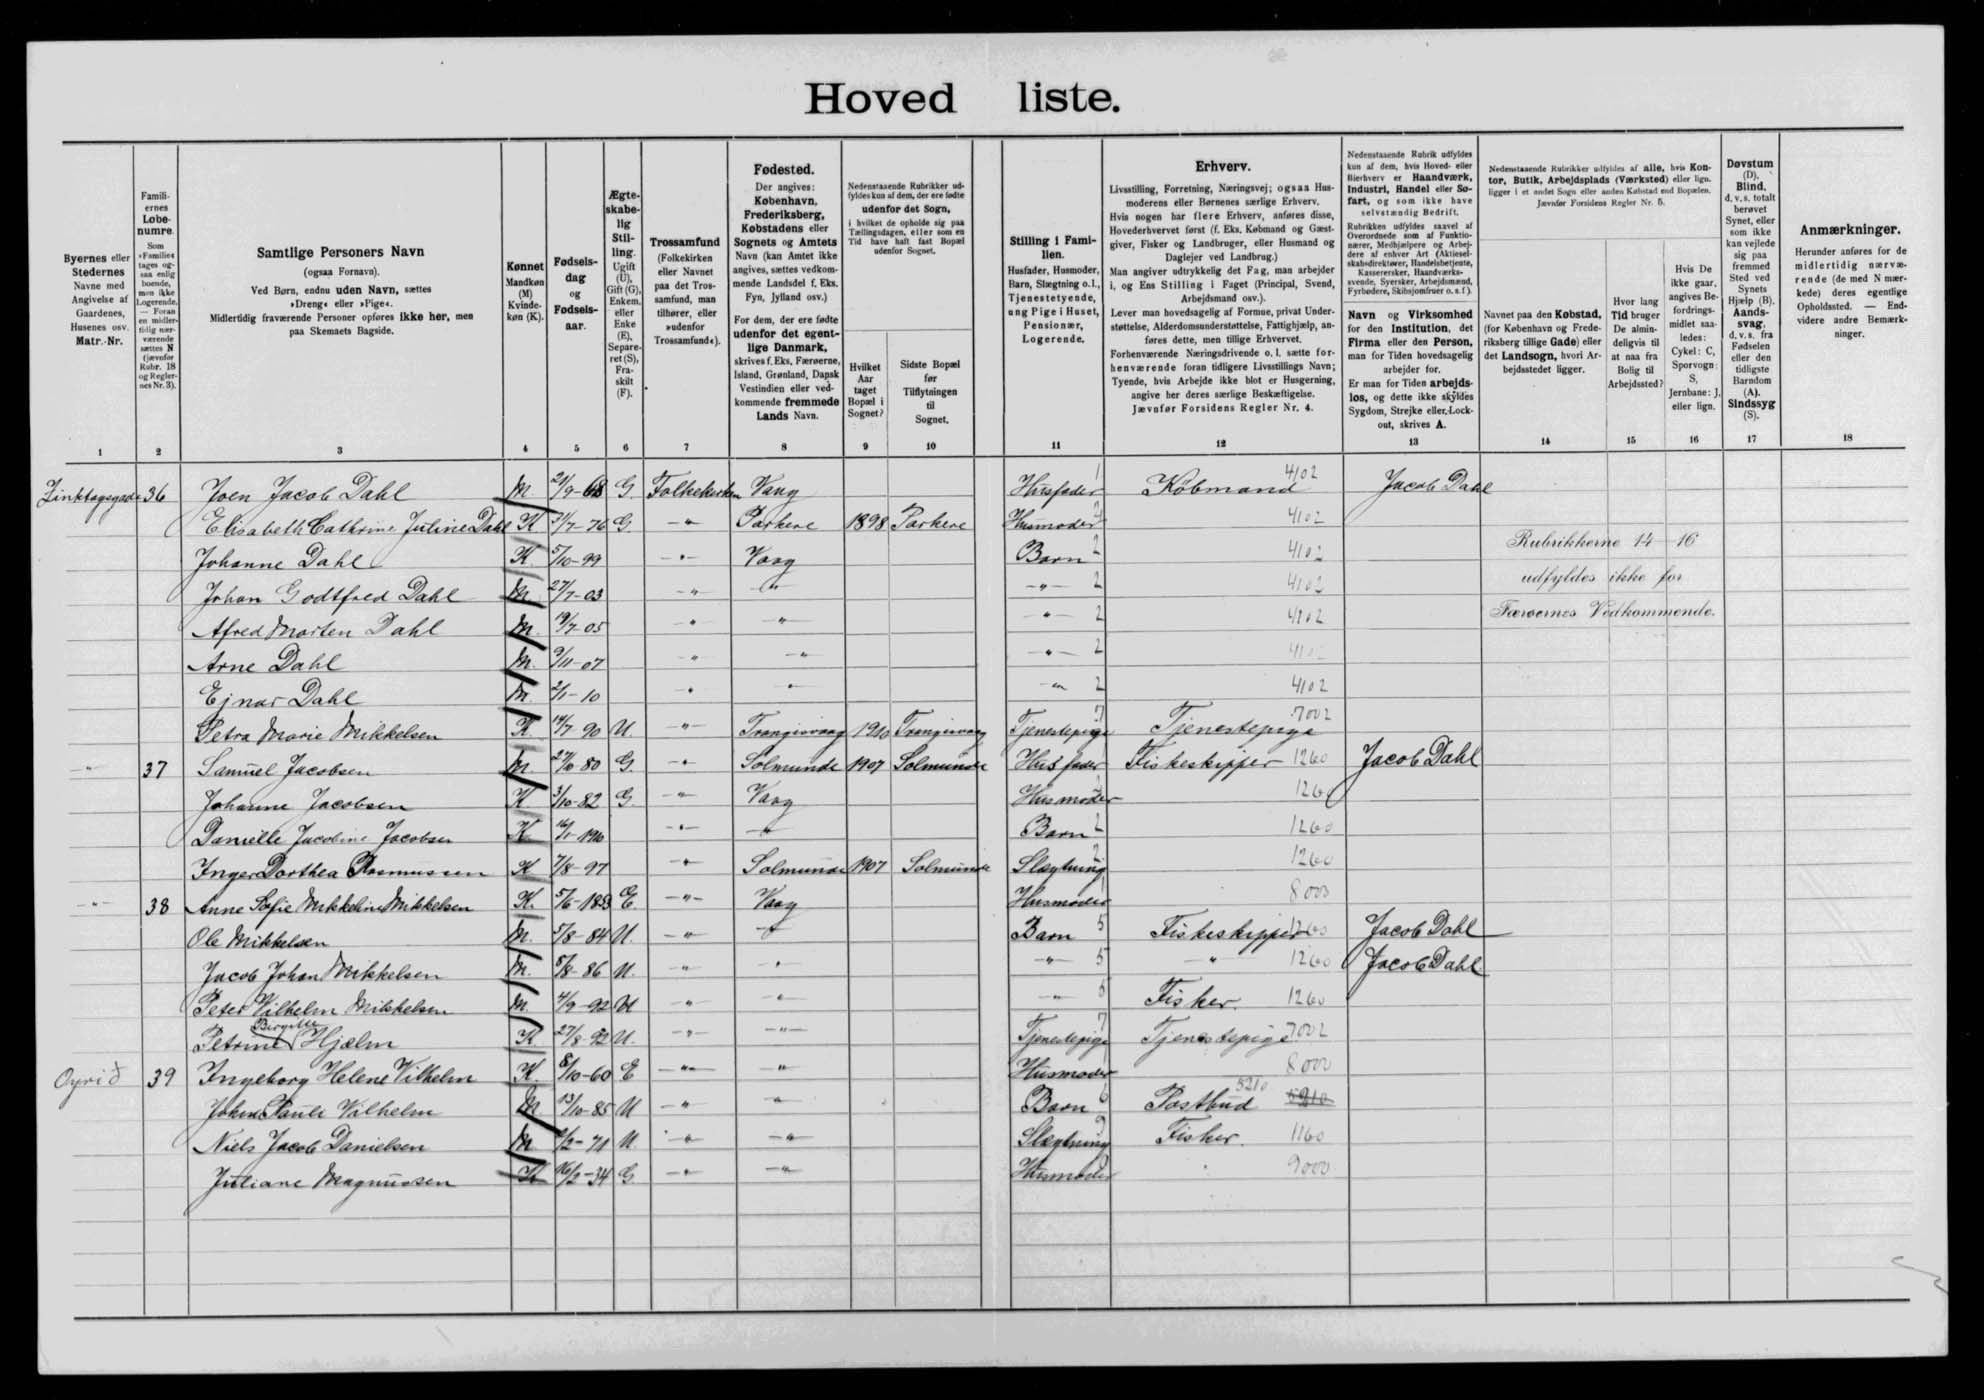 Hoved liste.
Byernes eller Stedernes Navne med Angivelse af Gaardenes, Husenes osv. Matr.-Nr.
Familiernes Løbenumre. Som »Familie« tages ogsaa enlig boende, men ikke Logerende. — Foran en midlertidig nærværende sættes N (jævnfør Rubr. 18 og Regler-nes Nr. 3).
Samtlige Personers Navn (ogsaa Fornavn). Ved Børn, endnu uden Navn, sættes »Dreng« eller »Pige«. Midlertidig fraværende Personer opføres ikke her, men paa Skemaets Bagside.
Kønnet Mandkøn (M) Kvindekøn (K).
Fødselsdag og Fødselsaar.
Ægteskabelig Stilling. Ugift (U), Gift (G), Enkem. eller Enke (E), Separeret (S), Fraskilt (F).
Trossamfund (Folkekirken eller Navnet paa det Trossamfund, man tilhører, eller »udenfor Trossamfund«).
Fødested. Der angives: København, Frederiksberg, Købstadens eller Sognets og Amtets Navn (kan Amtet ikke angives, sættes vedkommende Landsdel f. Eks. Fyn, Jylland osv.) For dem, der ere fødte udenfor det egentlige Danmark, skrives f. Eks. Færøerne, Island, Grønland, Dansk Vestindien eller vedkommende fremmede Lands Navn.
Nedenstaaende Rubrikker udfyldes kun af dem, der ere fødte udenfor det Sogn, i hvilket de opholde sig paa Tællingsdagen, eller som en Tid have haft fast Bopæl udenfor Sognet.
Hvilket Aar taget Bopæl i Sognet?
Sidste Bopæl før Tilflytningen til Sognet.
Stilling i Familien. Husfader, Husmoder, Barn, Slægtning o.l., Tjenestetyende, ung Pige i Huset, Pensionær, Logerende.
Erhverv. Livsstilling, Forretning, Næringsvej; ogsaa Husmoderens eller Børnenes særlige Erhverv. Hvis nogen har flere Erhverv, anføres disse, Hovederhvervet først (f. Eks. Købmand og Gæstgiver, Fisker og Landbruger, eller Husmand og Daglejer ved Landbrug.) Man angiver udtrykkelig det Fag, man arbejder i, og Ens Stilling i Faget (Principal, Svend, Arbejdsmand osv.). Lever man hovedsagelig af Formue, privat Understøttelse, Alderdomsunderstøttelse, Fattighjælp, anføres dette, men tillige Erhvervet. Forhenværende Næringsdrivende o. l. sætte forhenværende foran tidligere Livsstillings Navn; Tyende, hvis Arbejde ikke blot er Husgerning, angive her deres særlige Beskæftigelse. Jævnfør Forsidens Regler Nr. 4.
Nedenstaaende Rubrik udfyldes kun af dem, hvis Hoved- eller Bierhverv er Haandværk, Industri, Handel eller Søfart, og som ikke have selvstændig Bedrift. Rubrikken udfyldes saavel af Funktionærer, Medhjælpere og Arbejdere af enhver Art (Aktieselskabsdirektører, Handelsbetjente, Kasserersker, Haandværkssvende, Syersker, Arbejdsmænd, Fyrbødere, Skibsjomfruer o. s. f.). Navn og Virksomhed for den Institution, det Firma eller den Person, man for Tiden hovedsagelig arbejder for. Er man for Tiden arbejdsløs, og dette ikke skyldes Sygdom, Strejke eller Lockout, skrives A.
Nedenstaaende Rubrikker udfyldes af alle, hvis Kontor, Butik, Arbejdsplads (Værksted) eller lign. ligger i et andet Sogn eller anden Købstad end Bopælen. Jævnfør Forsidens Regler Nr. 5.
Navnet paa den Købstad, (for København og Frederiksberg tillige Gade) eller det Landsogn, hvori Arbejdsstedet ligger.
Hvor lang Tid bruger De almindeligvis til at naa fra Bolig til Arbejdssted?
Hvis De ikke gaar, angives Befordringsmidlet saaledes: Cykel: C, Sporvogn: S, Jernbane: J, eller lign.
Døvstum (D). Blind, d. v. s. totalt berøvet Synet, eller som ikke kan vejlede sig paa fremmed Sted ved Synets Hjælp (B). Aandssvag, d. v. s. fra Fødselen eller den tidligste Barndom (A). Sindssyg (S).
Anmærkninger. Herunder anføres for de midlertidig nærværende (de med N mærkede) deres egentlige Opholdssted. — Endvidere andre Bemærkninger.
1 2 3 4 5 6 7 8 9 10 11 12 13 14 15 16 17 18
36 Joen Jacob Dahl M. 21/9-68 G. Folkekirken Vaag Husfader 1 Købmand 4102 Jacob Dahl
Elisabeth Cathrine Juline Dahl K 31/7-76 G. -"- Porkere 1898 Porkere Husmoder 2 4102
Johanne Dahl K. 5/10-99 -"- Vaag Barn 2 4102 Rubrikkerne 14 - 16
Johan Godtfred Dahl M. 27/7-03 -"- -"- -"- 2 4102 udfyldes ikke for
Alfred Morten Dahl M. 19/7-05 -"- -"- -"- 2 4102 Færøernes Vedkommende.
Arne Dahl M. 9/11-07 -"- -"- -"- 2 4102
Ejnar Dahl M. 2/1-10 -"- -"- -"- 2 4102
Petra Marie Mikkelsen K. 14/7-90 U. -"- Trangisvaag 1910 Trangisvaag Tjenestepige 7 Tjenestepige 7002
-"- 37 Samuel Jacobsen M. 27/10-80 G. -"- Solmunde 1907 Solmunde Husfader 1 Fiskeskipper 1260 Jacob Dahl
Johanne Jacobsen K 3/10-82 G. -"- Vaag Husmoder 2 1260
Danielle Jacobine Jacobsen K. 16/1-1910 -"- -"- Barn 2 1260
Inger Dorthea Rasmussen K 7/8-97 -"- Solmunde 1907 Solmunde Slægtning 2 1260
-"- 38 Anne Sofie Mikkeline Mikkelsen K. 5/6-1853 E. -"- Vaag Husmoder 1 8000
Ole Mikkelsen M. 5/8-84 U. -"- -"- Barn 5 Fiskeskipper 1260 Jacob Dahl
Jacob Johan Mikkelsen M. 5/8-86 U. -"- -"- -"- 5 -"- 1260 Jacob Dahl
Peter Vilhelm Mikkelsen M. 4/9-92 U -"- -"- -"- 5 Fisker. 1260
Petrine Birgitte Hjælm K 27/8-92 U. -"- -"- Tjenestepige 7 Tjenestepige 7002
39 Ingeborg Helene Vilhelm K. 8/10-60 E -"- -"- Husmoder 1 8000
Johan Pauli Vilhelm M 13/10-85 U -"- -"- Barn 6 Postbud 5210
Niels Jacob Danielsen M 2/2-71 U. -"- -"- Slægtning 9 Fisker. 1160
Juliane Magnussen K 16/2-34 G. -"- -"- Husmoder 9000